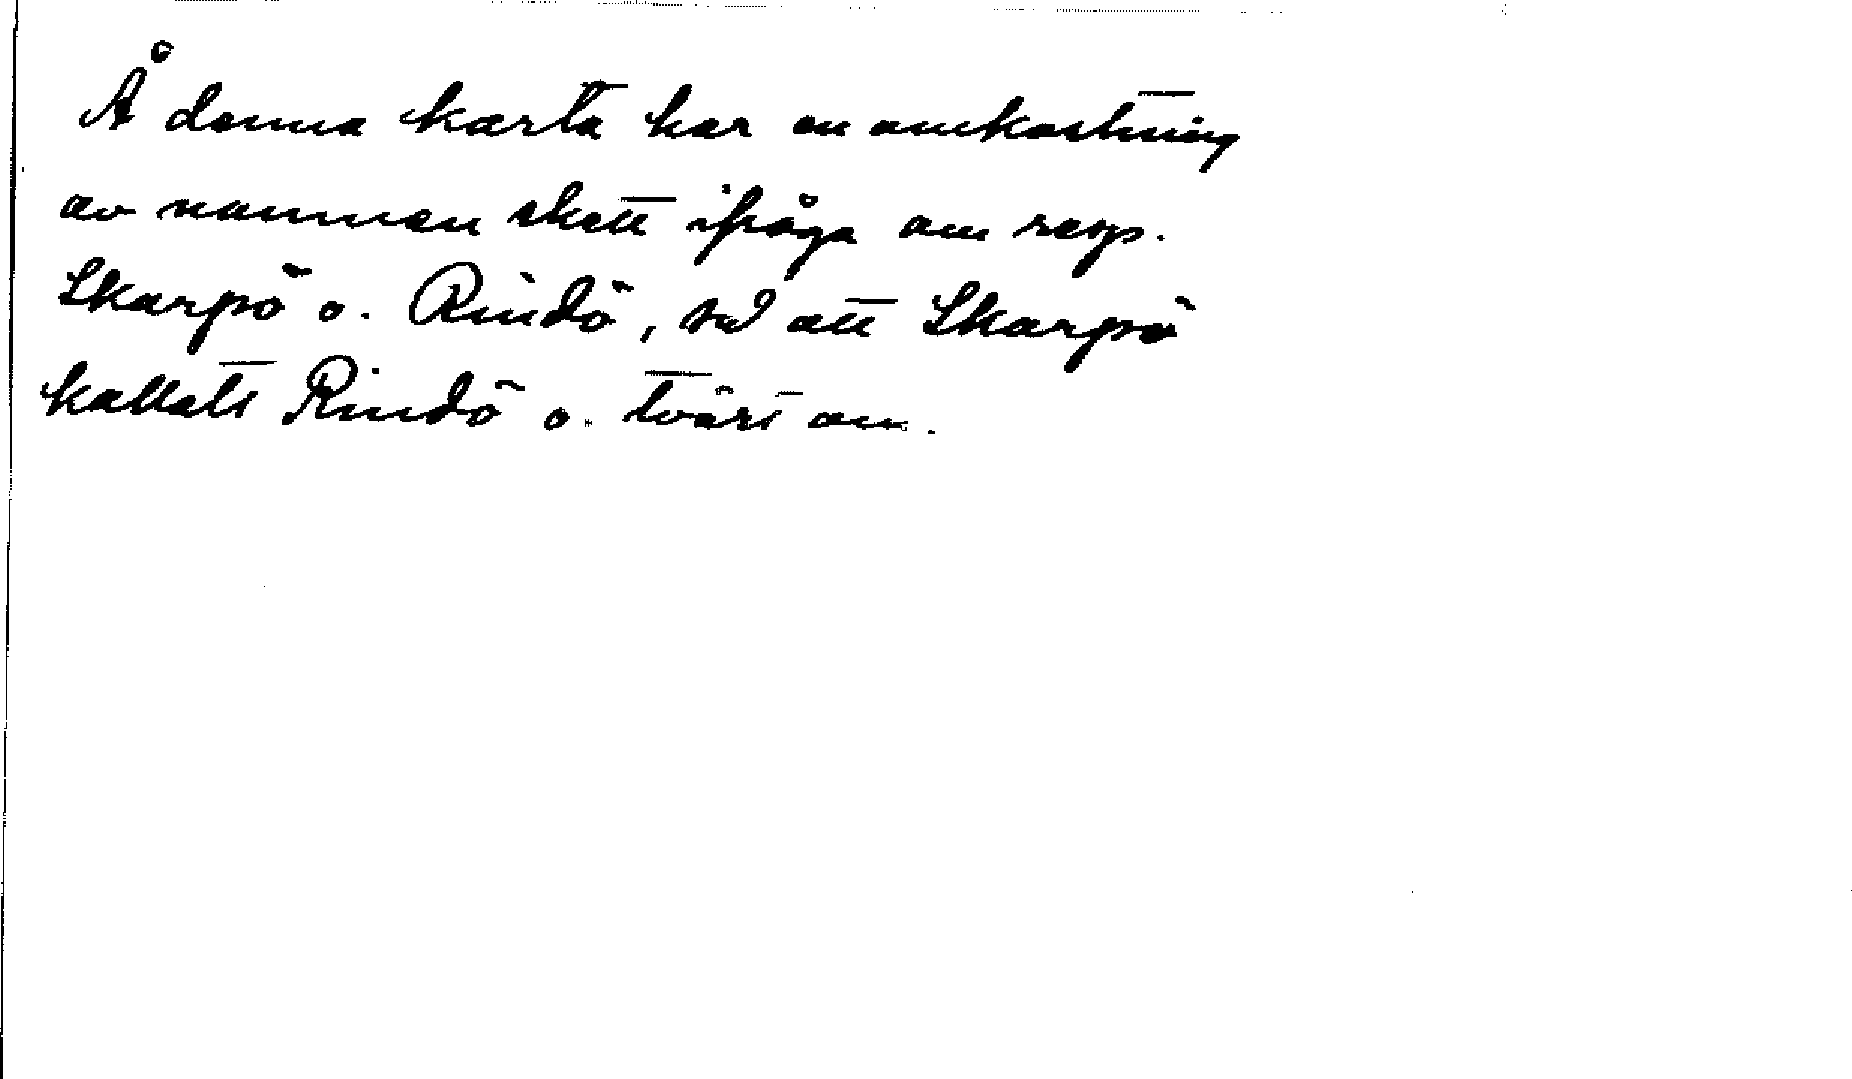 Å denna karta har en omkastning
av namnen skett ifråga om resp.
Skarpö o. Rindö, så att Skarpö
kallats Rindö o. tvärt om.